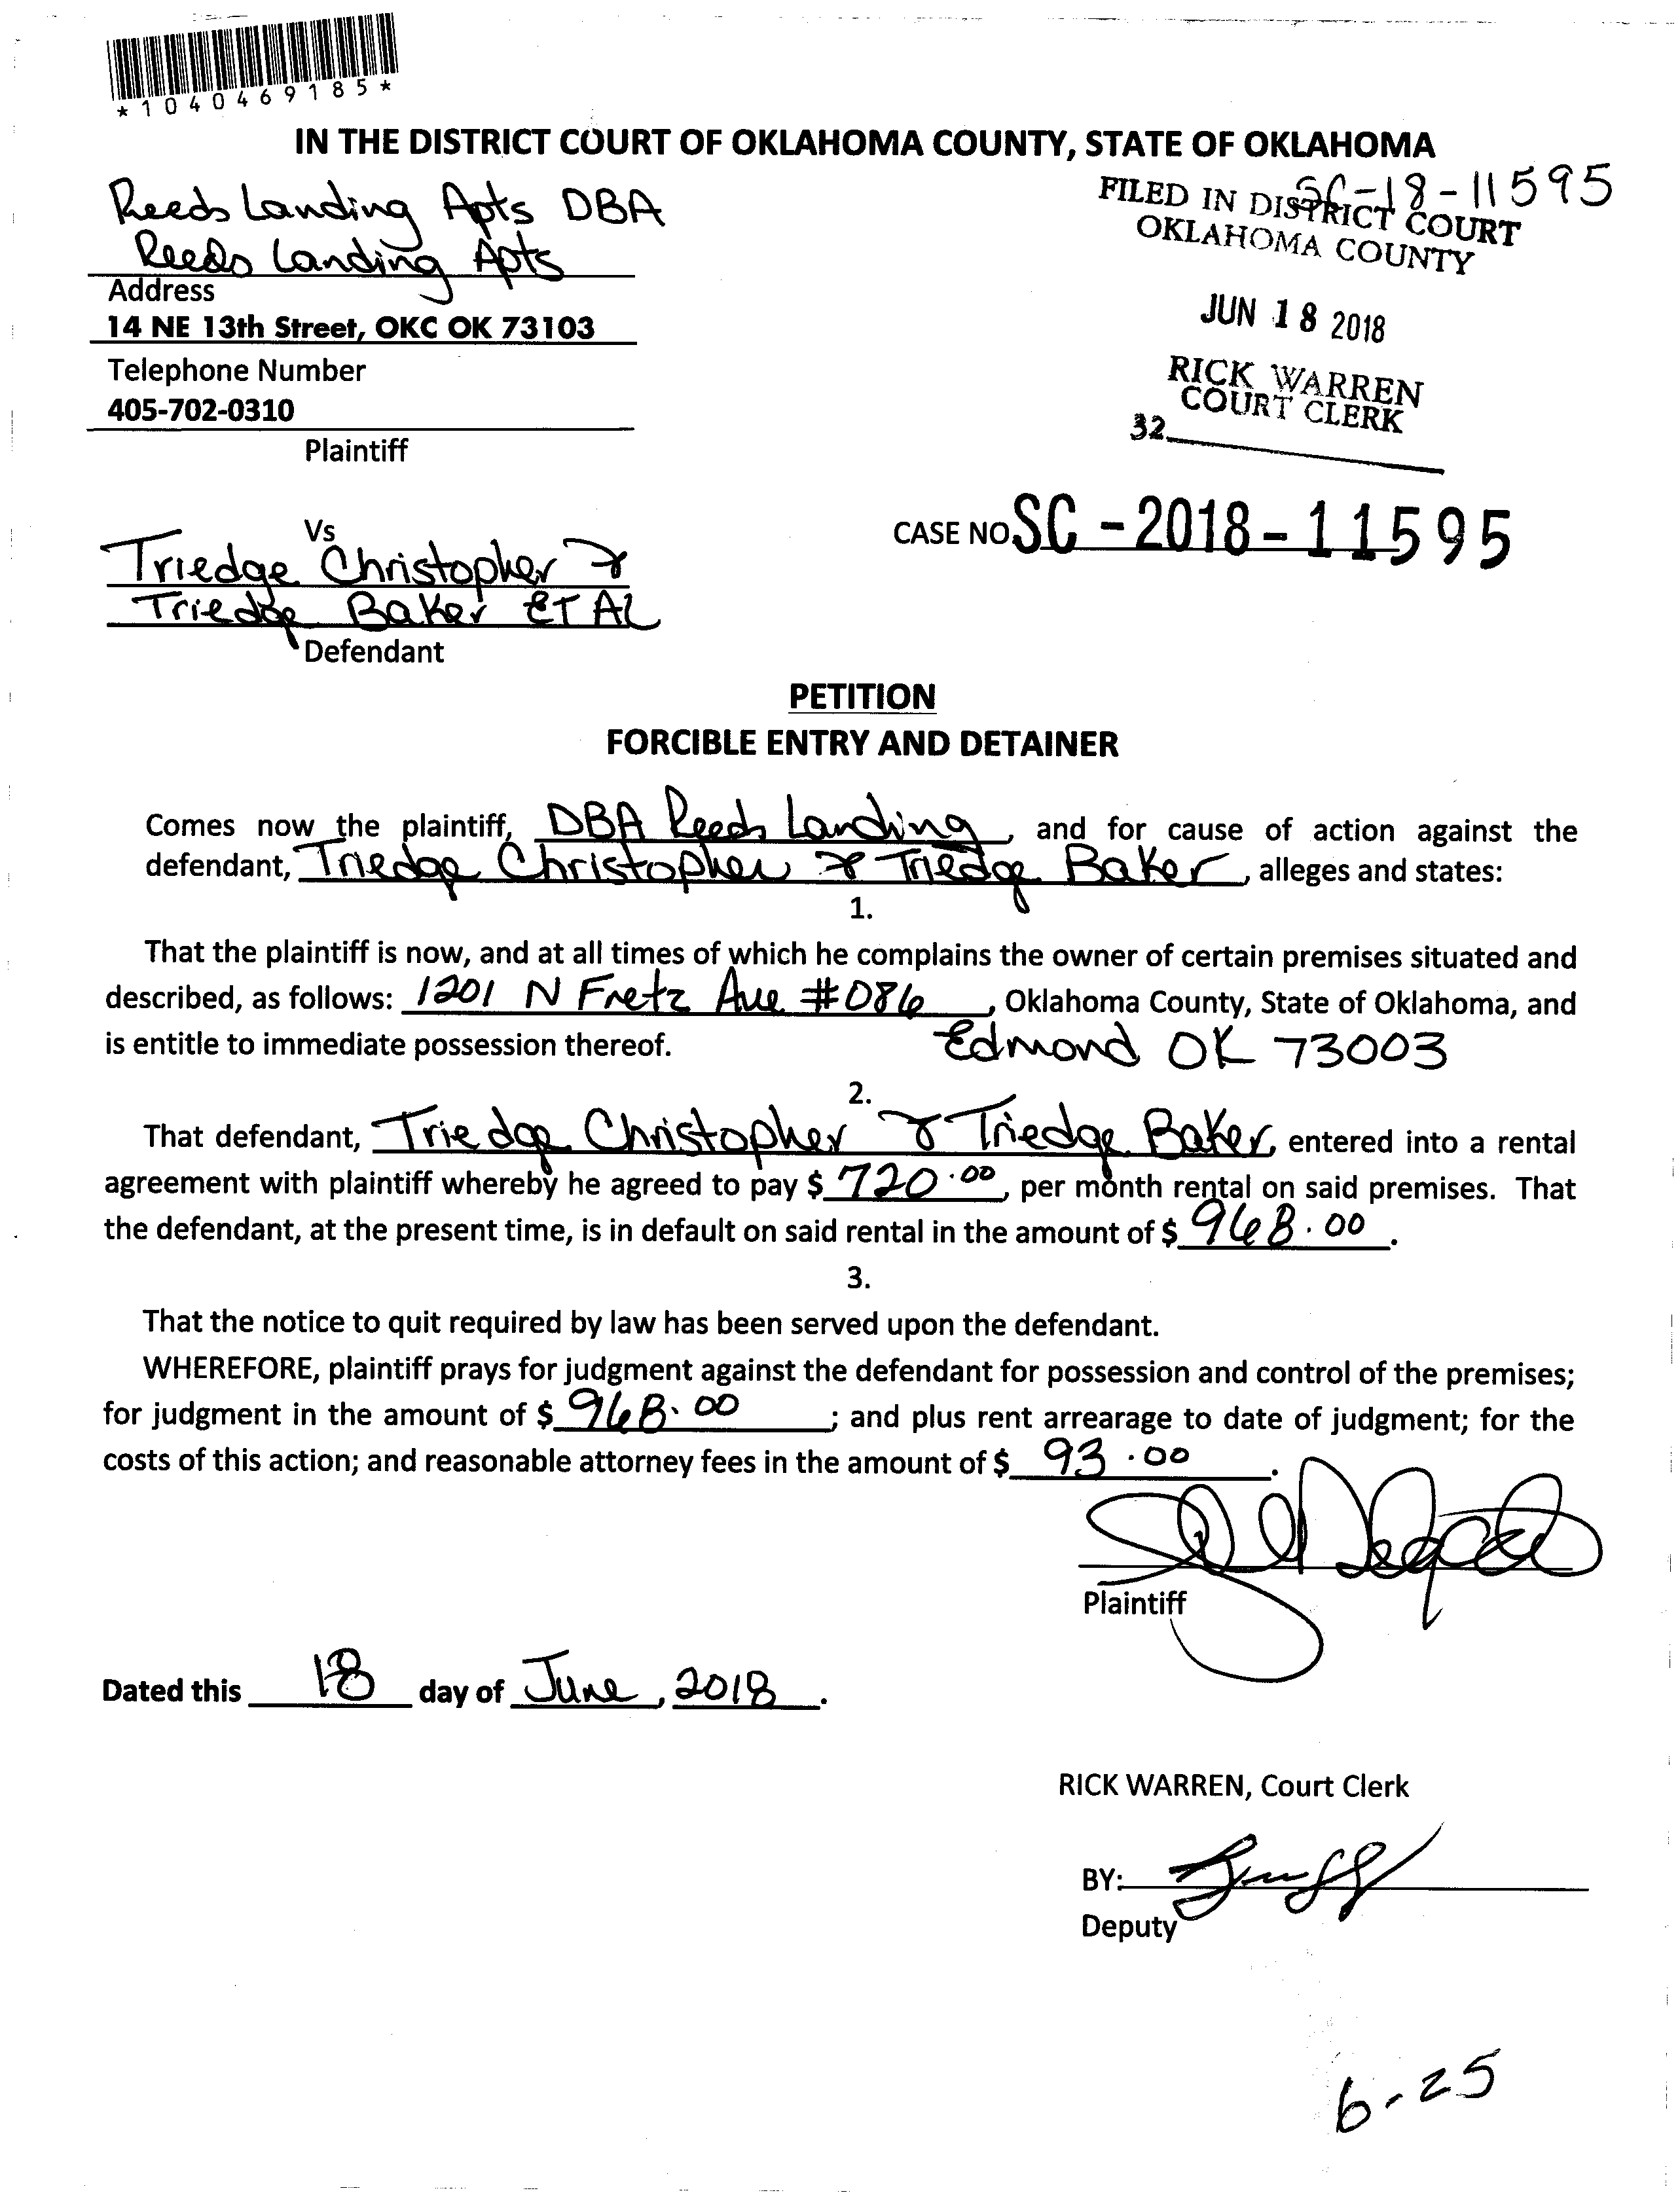 *1040469185*
IN THE DISTRICT COURT OF OKLAHOMA COUNTY, STATE OF OKLAHOMA
SC-18-11595
Reeds Landing Apts DBA
Reeds Landing Apts
FILED IN DISTRICT COURT
OKLAHOMA COUNTY
Address
14 NE 13th Street, OKC OK 73103
JUN 18 2018
Telephone Number
405-702-0310
RICK WARREN
COURT CLERK
32
Plaintiff
Vs
CASE NO. SC-2018-11595
Triedge Christopher &
Triedge Baker ET AL
Defendant
PETITION
FORCIBLE ENTRY AND DETAINER
Comes now the plaintiff, DBA Reeds Landing, and for cause of action against the
defendant, Triedge Christopher & Triedge Baker, alleges and states:
1.
That the plaintiff is now, and at all times of which he complains the owner of certain premises situated and
described, as follows: 1201 N Fretz Ave #086, Oklahoma County, State of Oklahoma, and
is entitle to immediate possession thereof. Edmond OK 73003
2.
That defendant, Triedge Christopher & Triedge Baker, entered into a rental
agreement with plaintiff whereby he agreed to pay $ 720.00, per month rental on said premises. That
the defendant, at the present time, is in default on said rental in the amount of $ 968.00.
3.
That the notice to quit required by law has been served upon the defendant.
WHEREFORE, plaintiff prays for judgment against the defendant for possession and control of the premises;
for judgment in the amount of $ 968.00; and plus rent arrearage to date of judgment; for the
costs of this action; and reasonable attorney fees in the amount of $ 93.00.
Plaintiff
Dated this 18 day of June, 2018.
RICK WARREN, Court Clerk
BY:
Deputy
6-25